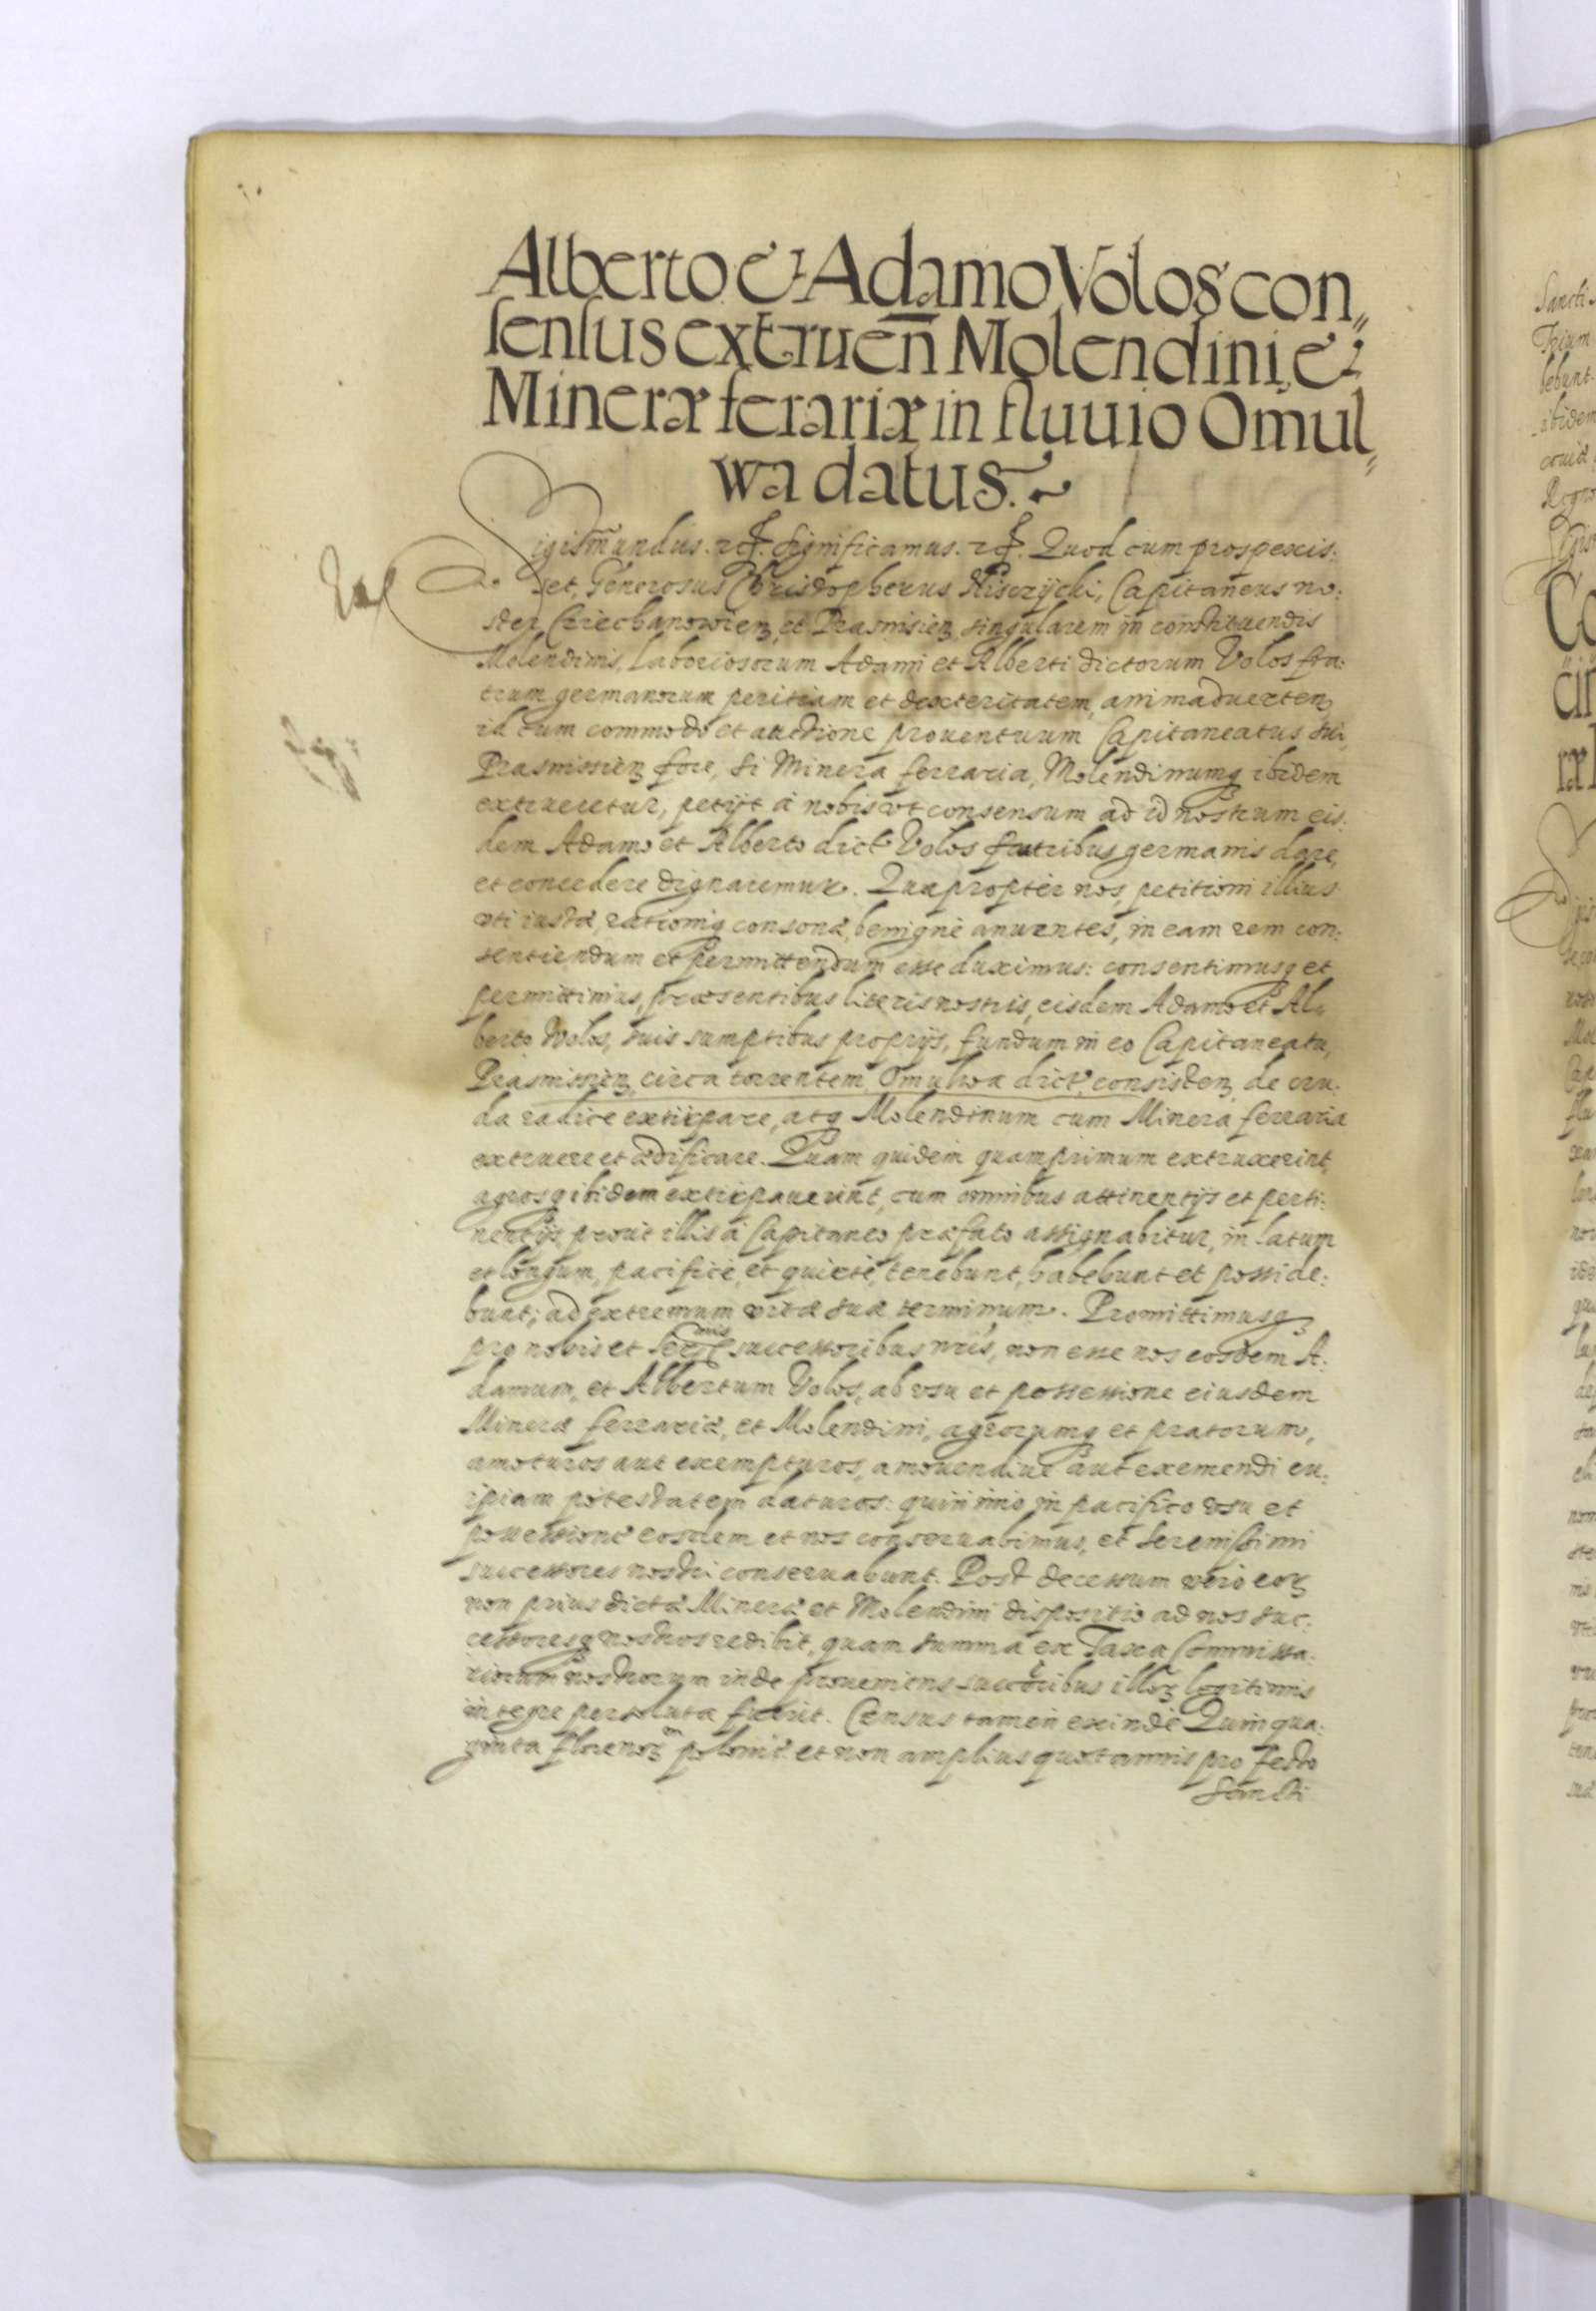 Alberto & Adamo Volos con„
ſenſus extruen̄ Molendini &
Mineræ ferariæ in fluuio Omul„
wa datus.
Sigism̄undus. etc. Significamus. etc. Quod cum prospexis:
set, Generosus Christopherus Pisczÿcki, Capitaneus no:
ster Cziechanowien̄, et Prasnisien̄, singularem in construendis
Molendinis, laboriosorum Adami et Alberti dictorum Volos fra:
trum germanorum peritiam et dexteritatem, animaduerten̄
id cum commodo et auctione prouentuum Capitaneatus sui,
Prasnissien̄ fore, si Minera ferraria, Molendinumq₃ ibidem
extrueretur, petijt à nobis vt consensum ad id nostrum eis:
dem Adamo et Alberto dict. Volos fratribus germanis dare,
et concedere dignaremur. Quapropter nos, petitioni illius
vti iustæ, rationiq₃ consonæ, benignè anuentes, in eam rem con:
sentiendum et permittendum esse duximus: consentimusq₃ et
permittimus, præsentibus literis nostris, eisdem Adamo et Al:
berto Wolos, suis sumptibus proprijs, fundum in eo Capitaneatu,
Prasnissien̄, circa torrentem Omulwa dict. consisten̄, de cru:
da radice extirpare, atq₃ Molendinum cum Minera ferraria
extruere et ædificare. Quam quidem quamprimum extruxerint,
agrosq₃ ibidem extirpauerint, cum omnibus attinentijs et perti:
nentijs, prout illis à Capitaneo præfato assignabitur, in latum
et longum, pacificè, et quietè, tenebunt, habebunt et posside:
bunt; ad extremum vitæ suæ terminum. Promittimusq₃
pro nobis et Ser^mis successoribus nr̄is, non esse nos eosdem A:
damum, et Albertum Volos, ab vsu et possessione eiusdem
Mineræ ferrariæ, et Molendini, agrorumq₃ et pratorum,
amoturos aut exempturos, amouendiue aut eximendi cu:
ipiam potestatem daturos: quinimo in pacifico vsu et
possessione eosdem et nos conseruabimus, et Serenissimi
successores nostri conseruabunt. Post decessum verò eoꝝ
non prius dictæ Mineræ et Molendini dispositio ad nos suc:
cessoresq₃ nostros redibit, quam summa ex Taxa Commissa:
riorum nostrorum inde proueniens succ̄oribus illoꝝ legitimis
integre persoluta fuerit. Census tamen exinde Quinqua:
ginta florenoꝝ polonic. et non amplius quotannis pro festo
Sancti